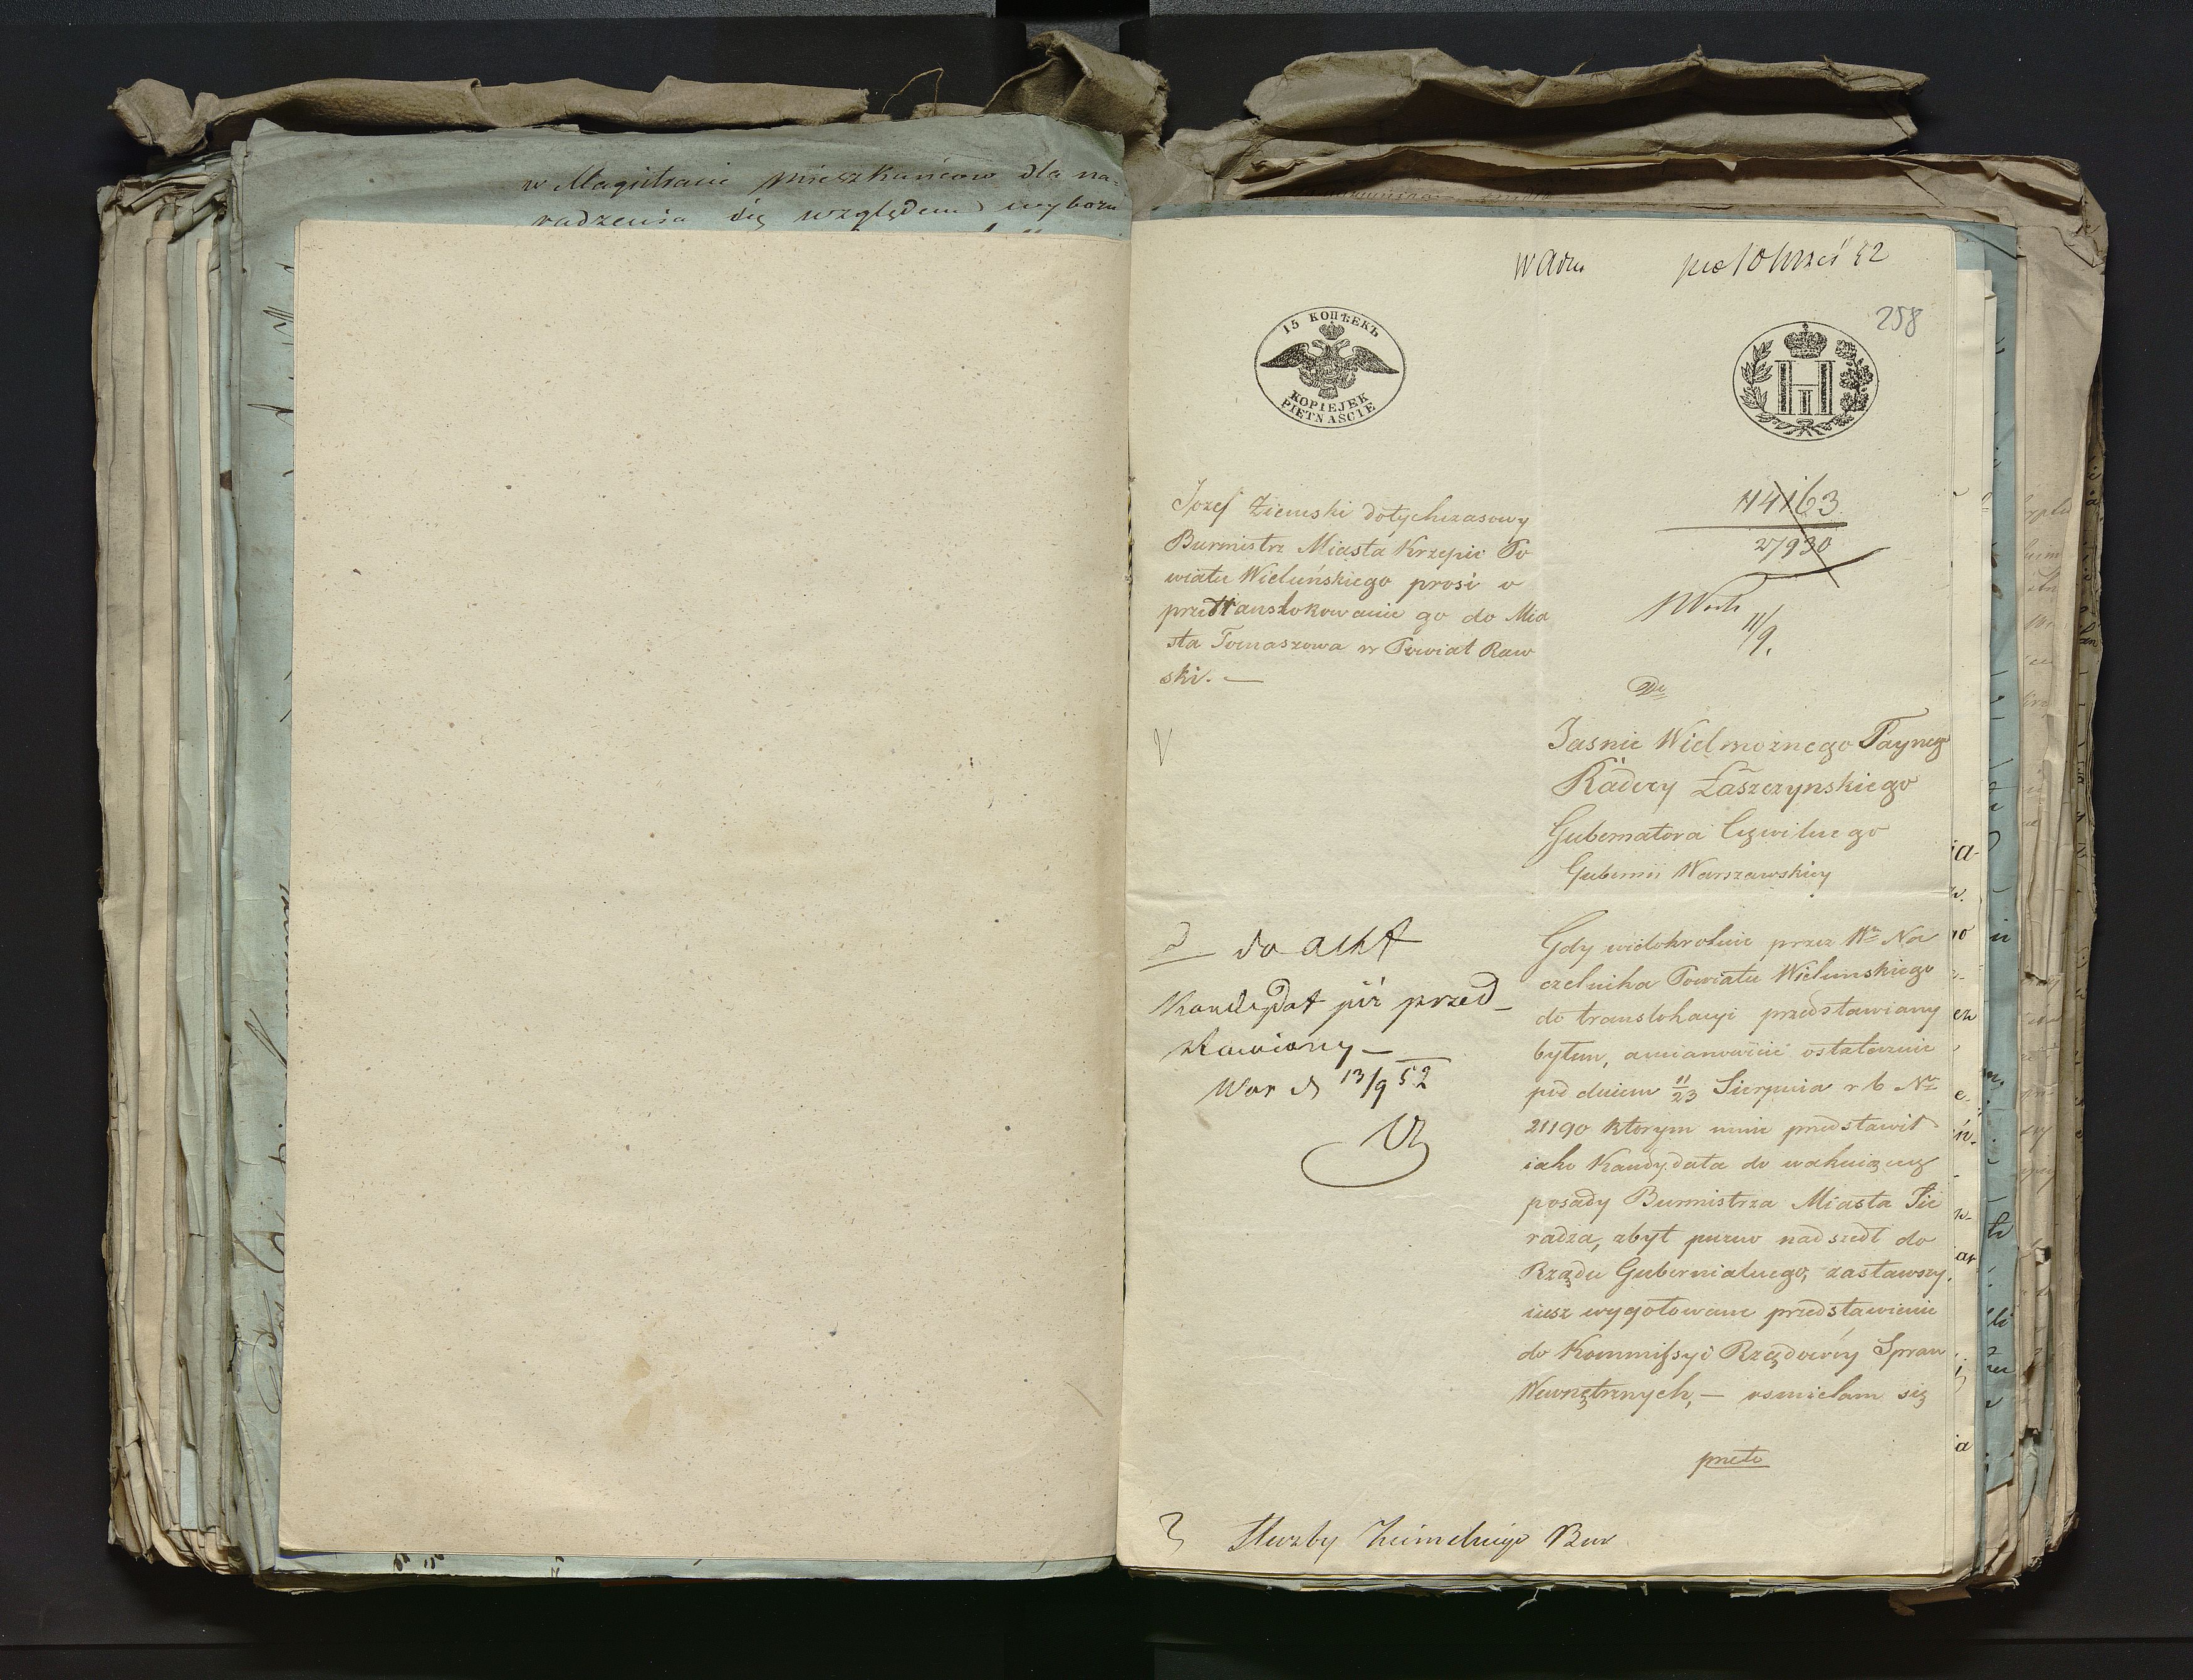 w Magistracie mieszkańców dla na=
radzenia się względem wyboru
258
15 КОПѢЕКЪ
KOPIEJEK
PIĘTNAŚCIE
Н I
14163
27930
11/9.
Jozef Ziemski dotychczasowy
Burmistrz Miasta Krzepic Po
wiatu Wieluńskiego prosi o
przetranslokowanie go do Mia
sta Tomaszowa w Powiat Raw
ski. —
Do
Jasnie Wielmożnego Taynego
Radcy Łaszczynskiego
Gubernatora Cywilnego
Gubernii Warszawskiey
do akt
Kandydat już przed_
stawiony —
War d 13/9 52
Gdy wielokrotnie przez Wo Na
czelnika Powiatu Wielunskiego
do translokacyi przedstawiany
byłem, amianowicie ostatecznie
pod dniem 11/23 Sierpnia r b No
21190 ktorym mnie przedstawił
iako Kandydata do wakuiącey
posady Burmistrza Miasta Sie
radza, zbyt puzno nadszedł do
Rządu Gubernialnego, zastawszy
iusz wygotowane przedstawienie
do Kommissyi Rządowéy Spraw
Wewnętrznych, — osmielam się
przeto
Służby Ziemskiego Bur